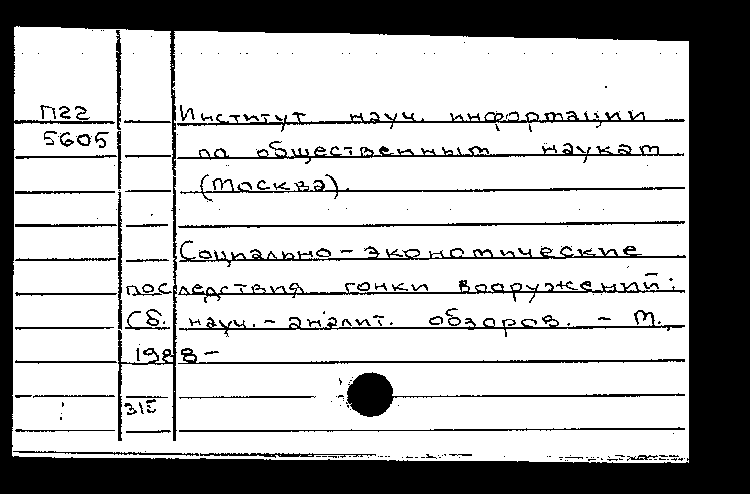 П22 Институт науч. информации
5605 по общественным наукам
(Москва).
Социально-экономические
последствия гонки вооружений:
Сб. науч.-аналит. обзоров. - М.,
1988-
315